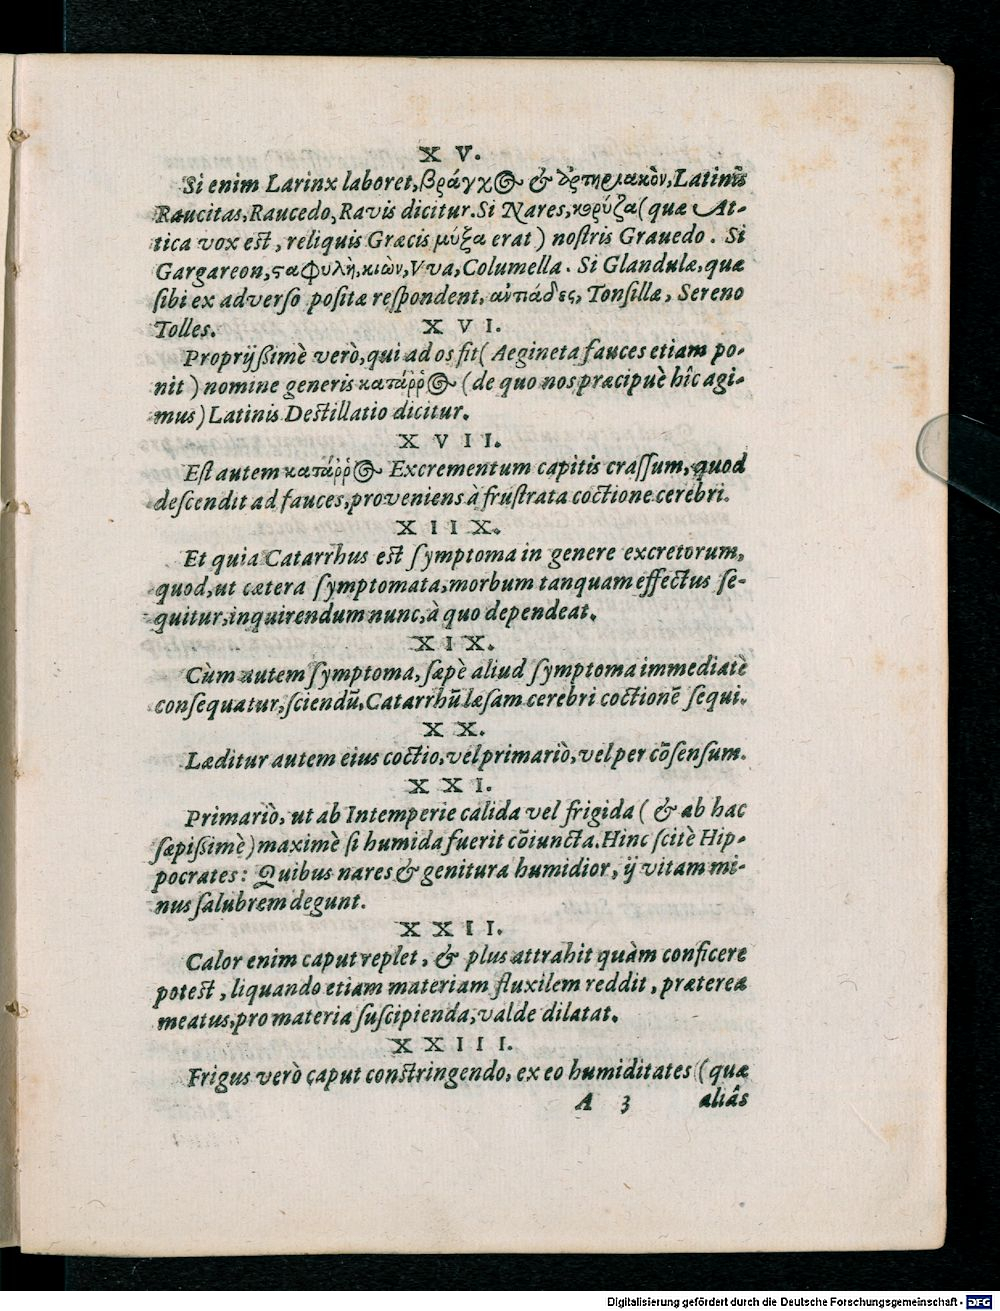 X V.
Si enim Larinx laboret, βράγχος & ἀρτηριακὸν, Latinis
Raucitas, Raucedo, Ravis dicitur. Si Nares, κορύζα (quæ At-
tica vox est, reliquis Græcis μύξα erat) nostris Grauedo. Si
Gargareon, ςαφυλὴ, κιὼν, Vva, Columella. Si Glandulæ, quæ
sibi ex adverso positæ respondent, ἀντιάδες, Tonsillæ, Sereno
Tolles.
X V I.
Proprijßimè verò, qui ad os fit (Aegineta fauces etiam po-
nit) nomine generis κατάῤῥος (de quo nos præcipuè hîc agi-
mus) Latinis Destillatio dicitur.
X V I I.
Est autem κατάῤῥος Excrementum capitis crassum, quod
descendit ad fauces, proveniens à frustrata coctione cerebri.
X I I X.
Et quia Catarrhus est symptoma in genere excretorum,
quod, ut cætera symptomata, morbum tanquam effectus se-
quitur, inquirendum nunc, à quo dependeat.
X I X.
Cùm autem symptoma, sæpè aliud symptoma immediatè
consequatur, sciendũ, Catarrhũ læsam cerebri coctionẽ sequi.
X X.
Læditur autem eius coctio, vel primariò, vel per cõsensum.
X X I.
Primariò, ut ab Intemperie calida vel frigida (& ab hac
sæpißimè) maximè si humida fuerit cõiuncta. Hinc scitè Hip-
pocrates: Quibus nares & genitura humidior, ij vitam mi-
nus salubrem degunt.
X X I I.
Calor enim caput replet, & plus attrahit quàm conficere
potest, liquando etiam materiam fluxilem reddit, prætereæ
meatus, pro materia suscipienda, valde dilatat.
X X I I I.
Frigus verò caput constringendo, ex eo humiditates (quæ
A 3 aliâs
Digitalisierung gefördert durch die Deutsche Forschungsgemeinschaft - DFG